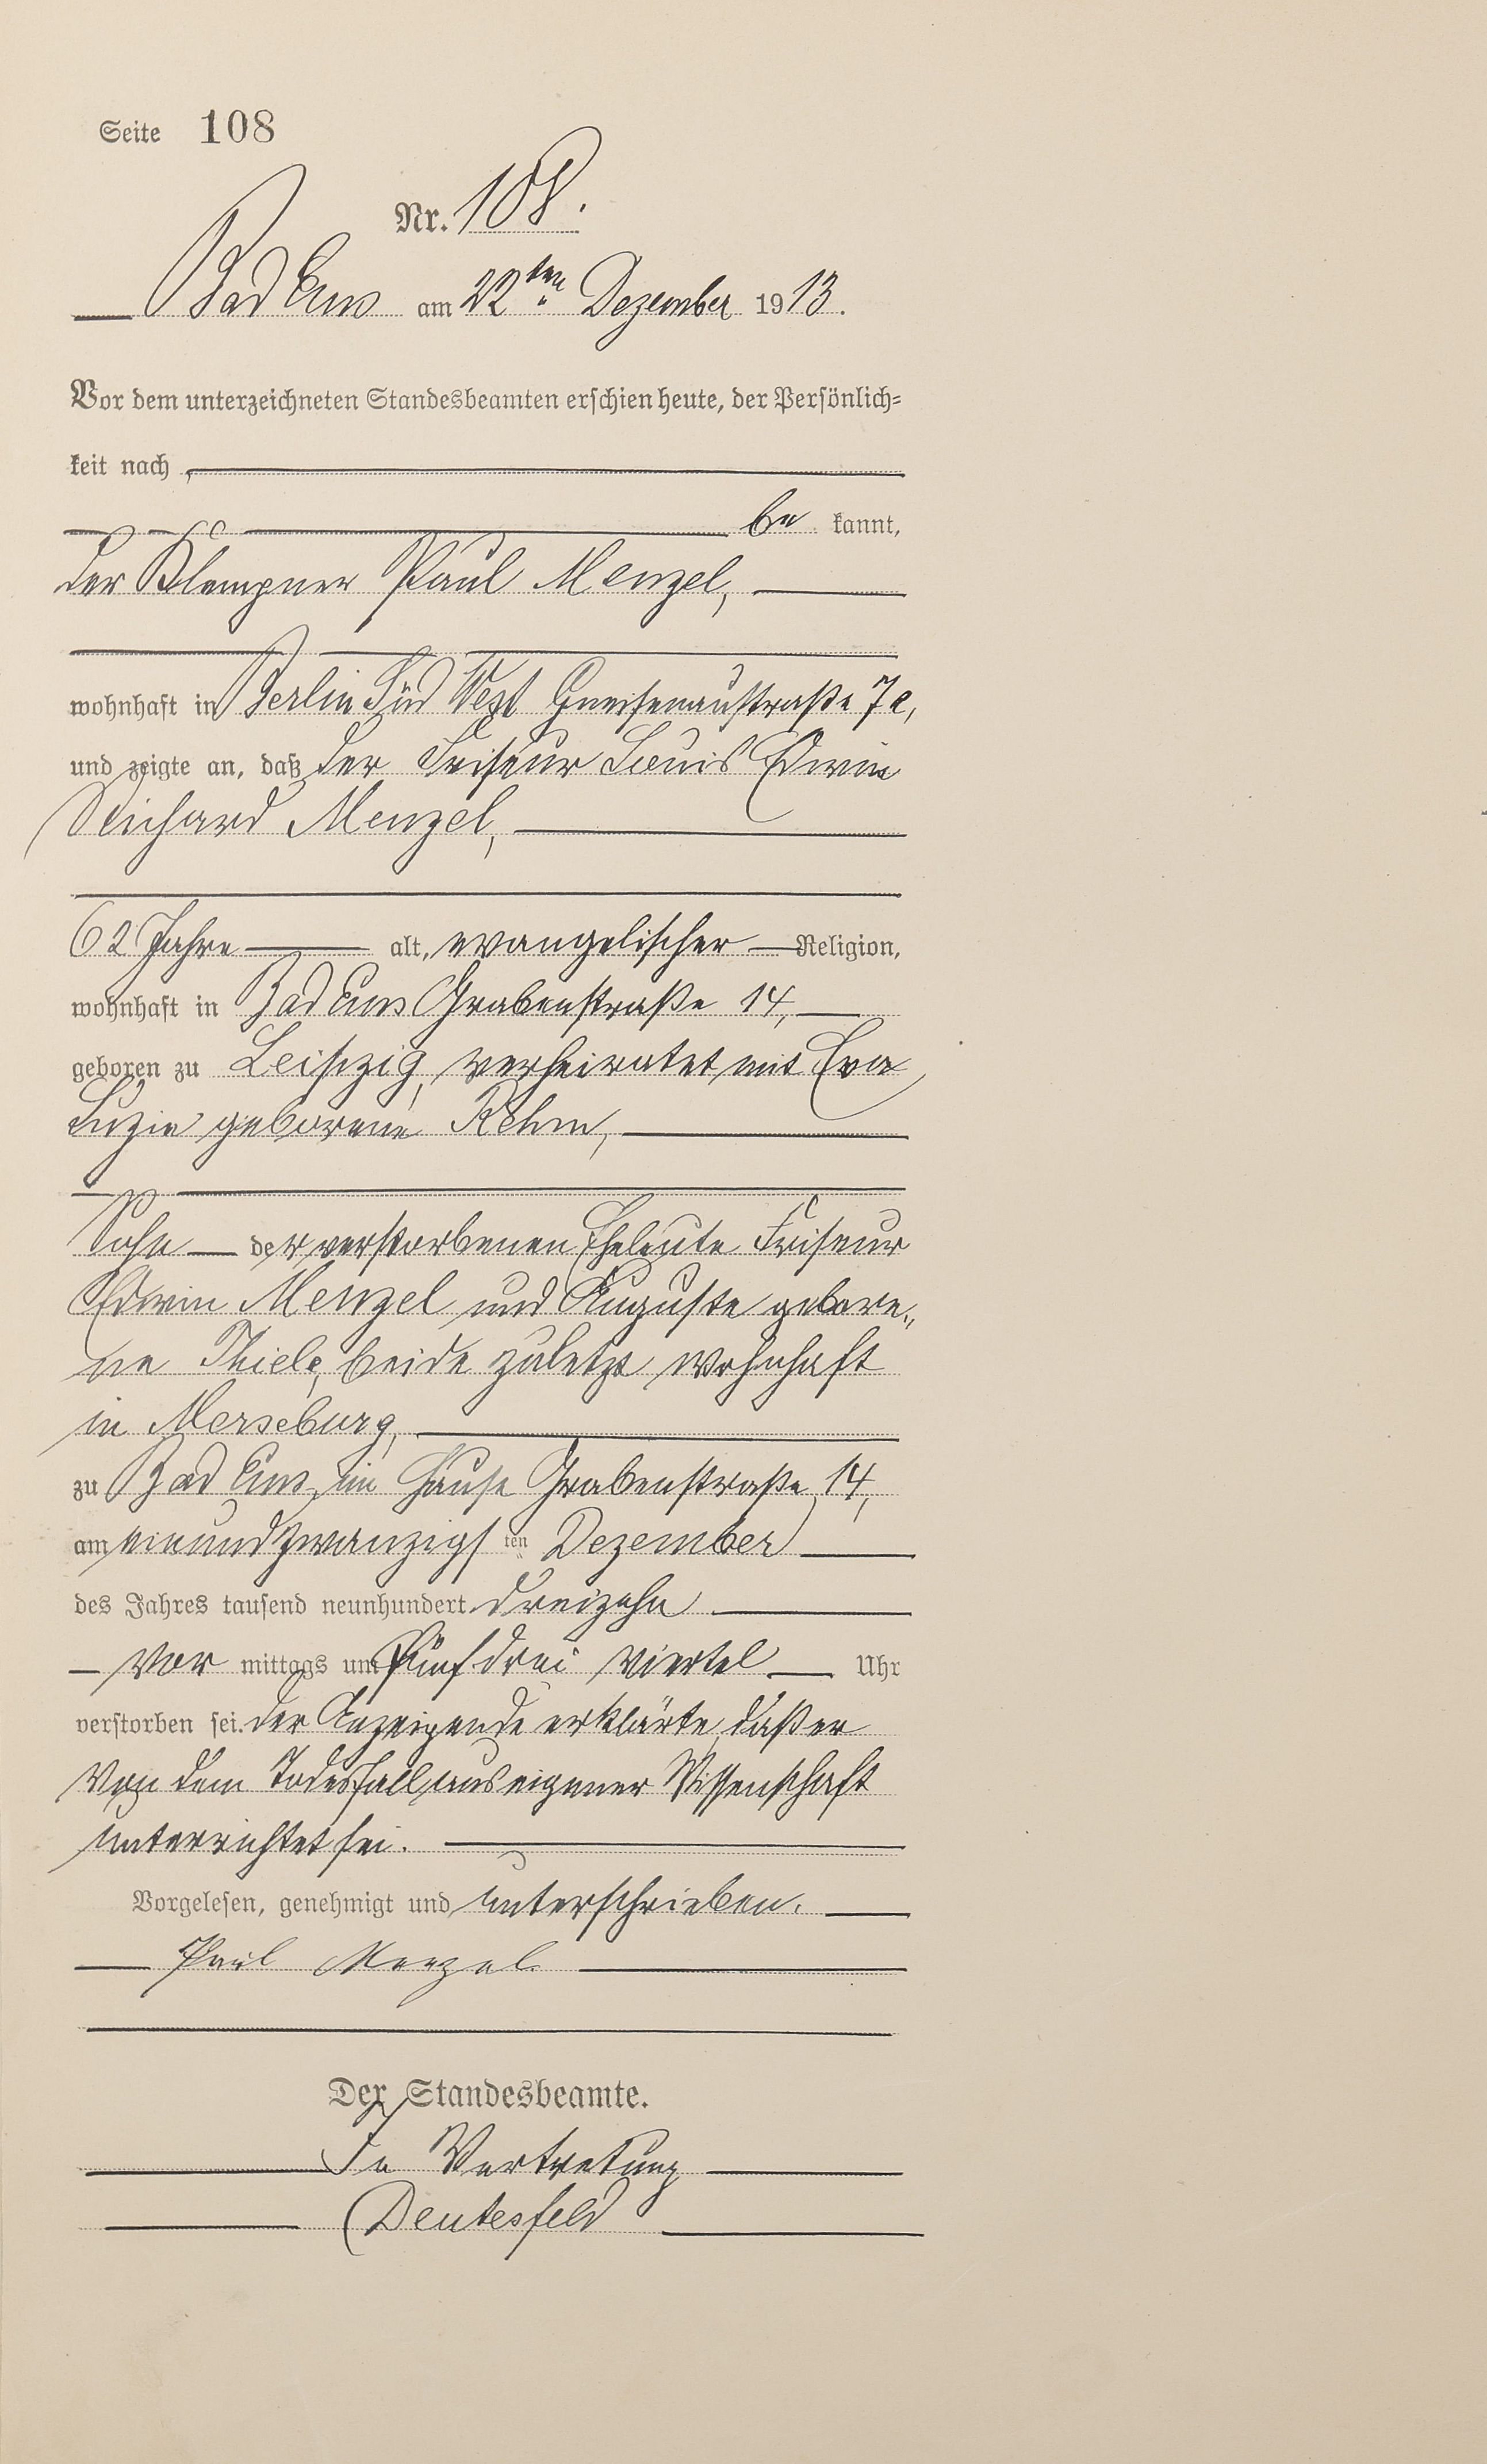 Seite 108
Nr. 108.
Bad Ems am 22ten Dezember 1913.
Vor dem unterzeichneten Standesbeamten erschien heute, der Persönlich=
keit nach
be kannt,
der Klempner Paul Menzel,
wohnhaft in Berlin Süd West Gneisenaustraße 7a,
und zeigte an, daß der Friseur Louis Edwin
Reichard Menzel,
62 Jahre alt, evangelischer Religion,
wohnhaft in Bad Ems Grabenstraße 14,
geboren zu Leipzig, verheiratet mit Eva
Luzie geborene Rehm,
Sohn der verstorbenen Eheleute Friseur
Edwin Menzel und Auguste gebore„
ne Thiele, beide zuletzt wohnhaft
in Merseburg,
zu Bad Ems, im Hause Grabenstraße 14,
am einundzwanzigsten Dezember
des Jahres tausend neunhundert dreizehn
vor mittags um fünf drei viertel Uhr
verstorben sei. Der Anzeigende erklärte, daß er
von dem Todesfall aus eigener Wissenschaft
unterrichtet sei.
Vorgelesen, genehmigt und unterschrieben.
Paul Menzel
Der Standesbeamte.
In Vertretung
Deutesfeld